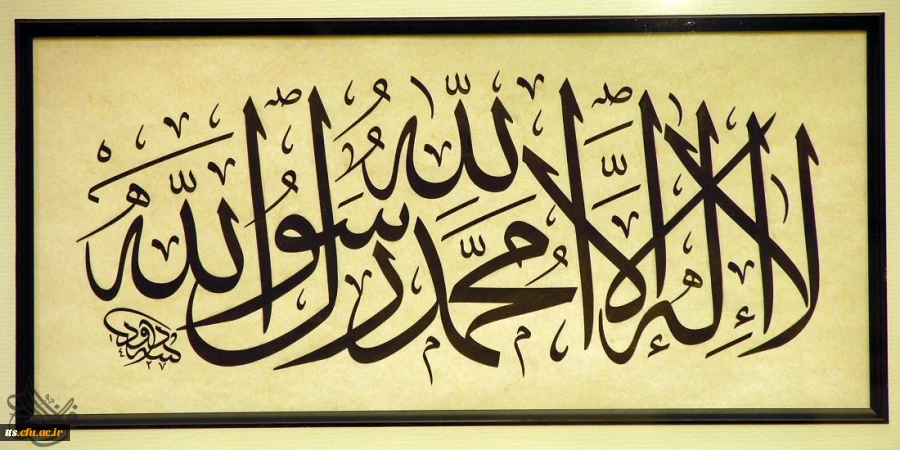 لَا إِلٰهَ إِلَّا اللّٰهُ مُحَمَّدٌ رَسُولُ اللّٰهِ
١٤٢٧
tts.cfu.ac.ir